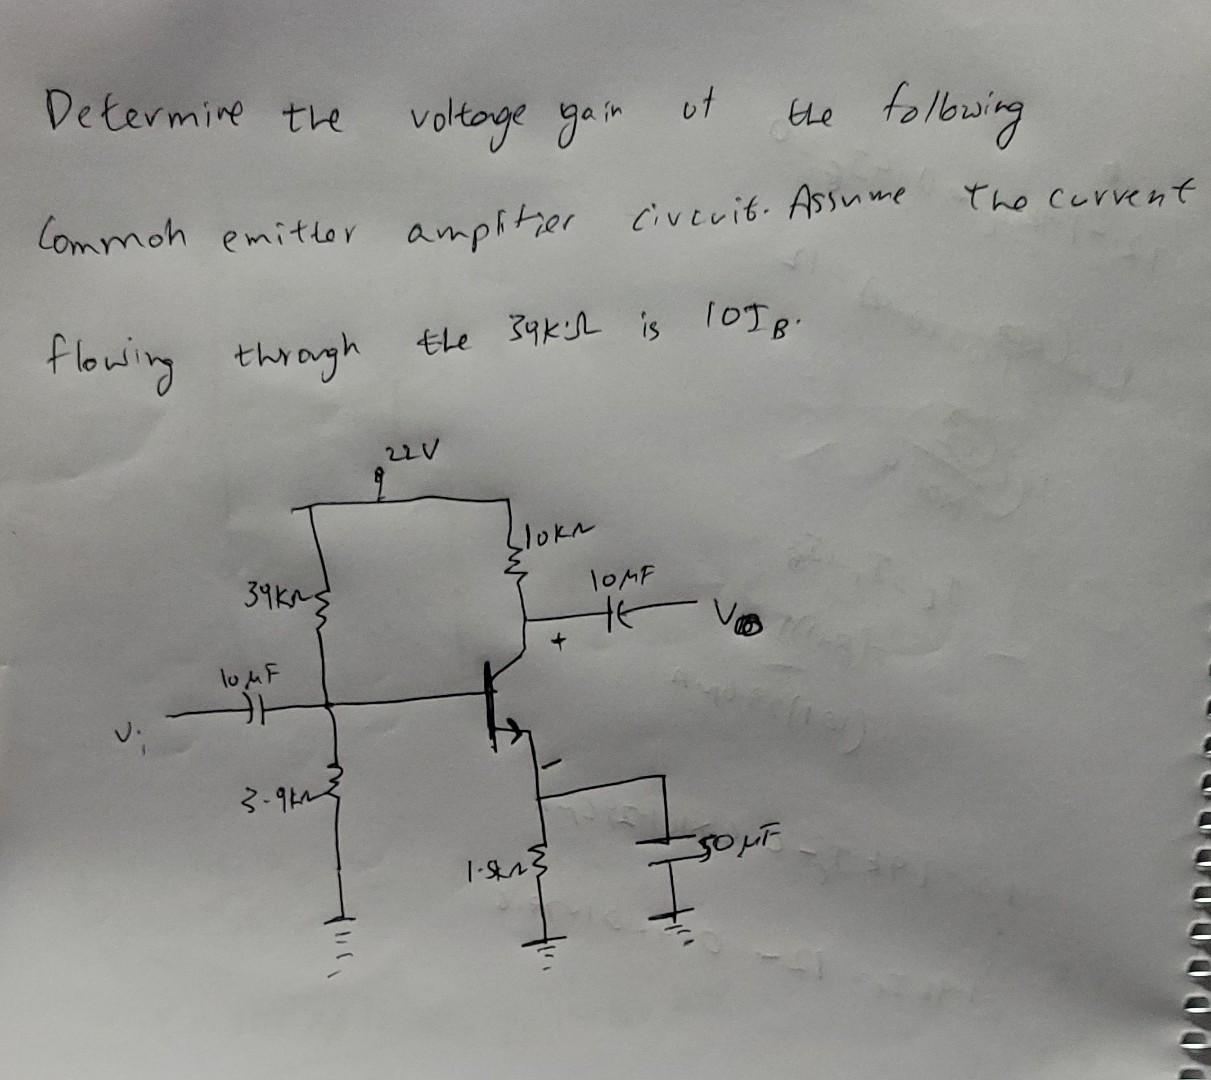 Determine the voltage gain of the following
Common emitter amplifier circuit. Assume the current
flowing through the 39kΩ is 10I_B.
22V
10kΩ
39kΩ
10μF
V
10μF
+
Vi
-
3.9kΩ
50μF
1.5kΩ